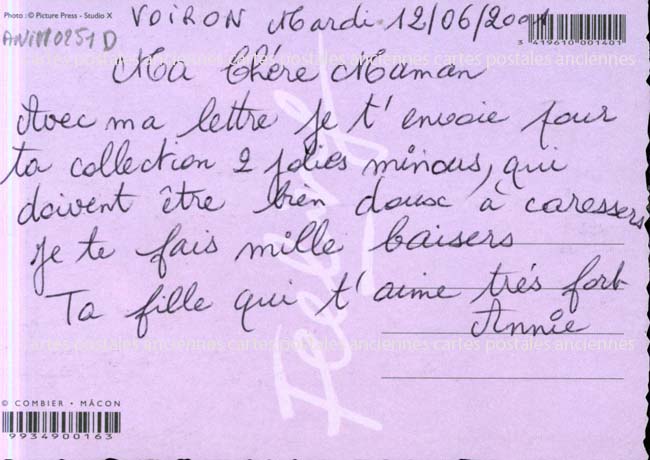 Photo : © Picture Press - Studio X
VOIRON Mardi 12/06/2001
ANIM0251D
3 419610 001401
cartes postales anciennes cartes postales anciennes cartes postales anciennes
Ma Chére Maman
Avec ma lettre je t'envoie pour
ta collection 2 jolies minous, qui
doivent être bien doux à caressers
Je te fais mille baisers
Ta fille qui t'aime trés fort
Annie
cartes postales anciennes cartes postales anciennes cartes postales anciennes
Feelings
© COMBIER • MÂCON
9934900163